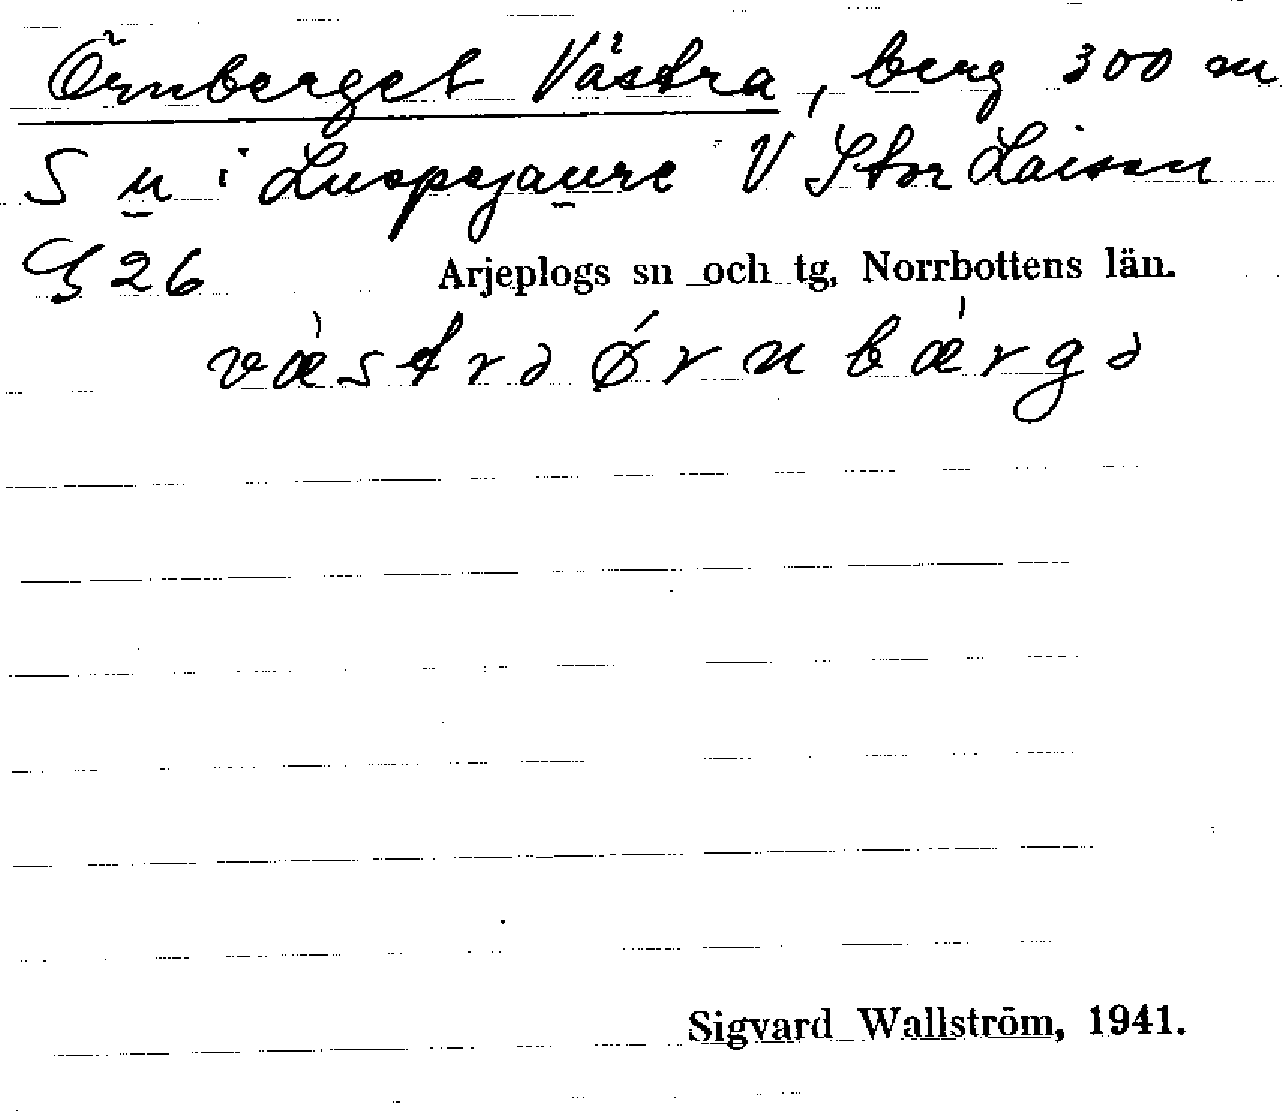 Örnberget Västra, berg 300 m
S u i Luspejaure V Stor Laisan
G 26
Arjeplogs sn och tg, Norrbottens län.
væ̀strə ǿrnbæ̀rgə
Sigvard Wallström, 1941.